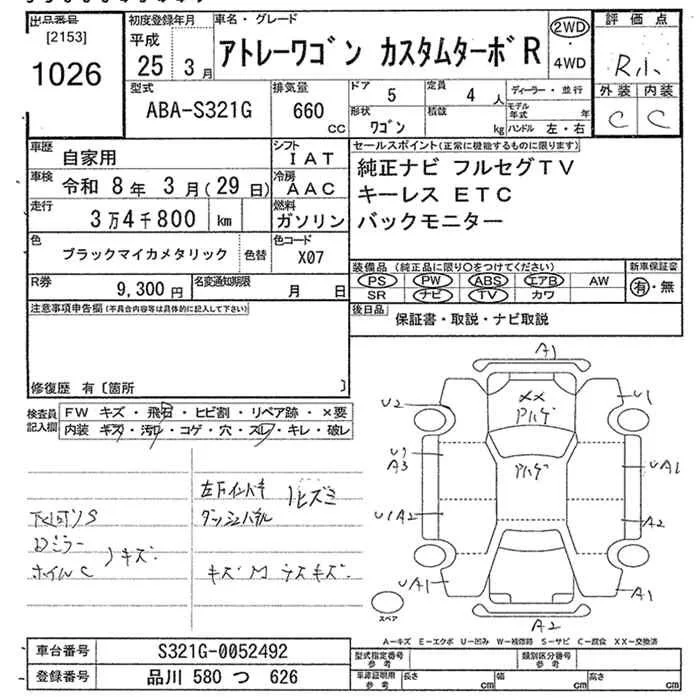 出品番号
[2153]
1026
初度登録年月
平成
25 3月
車名・グレード
アトレーワゴン カスタムターボR
2WD
・
4WD
評価点
R小
外装 内装
C C
型式
ABA-S321G
排気量
660
cc
ドア
5
定員
4人
形状
ワゴン
積載
kg
ディーラー・並行
モデル年式 年
ハンドル 左・右
車歴
自家用
シフト
IAT
車検
令和 8年 3月(29日)
冷房
AAC
走行
3万4千800 km
燃料
ガソリン
色
ブラックマイカメタリック
色替
色コード
X07
R券
9,300円
名変通知期限
月 日
セールスポイント(正常に機能するものに限ります)
純正ナビ フルセグTV
キーレス ETC
バックモニター
装備品(純正品に限り○をつけてください)
PS PW ABS エアB AW
SR ナビ TV カワ
新車保証書
有・無
後日品
保証書・取説・ナビ取説
注意事項申告欄(不具合内容等は具体的に記入して下さい)
修復歴 有〔箇所 〕
検査員記入欄
FW キズ・飛石・ヒビ割・リペア跡・×要
内装・キズ・汚レ・コゲ・穴・スレ・キレ・破レ
ダッシュパネル
Dミラー
キズ
ホイルC
A1
U2
U1
XX
U1
A3
UA1
U1A2
A2
UA1
A1
A2
スペア
A−キズ E−エクボ U−凹み W−補修跡 S−サビ C−腐食 XX−交換済
車台番号
S321G-0052492
登録番号
品川 580 つ 626
型式指定番号
参考
類別区分番号
参考
車非証明用
参考
長さ cm
幅 cm
高さ cm